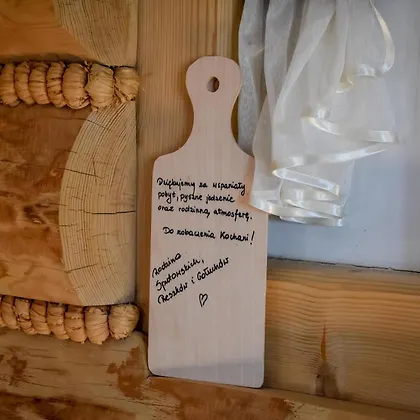 Dziękujemy za wspaniały
pobyt, pyszne jedzenie
oraz rodzinną atmosferę.
Do zobaczenia Kochani!
Rodzina
i Gołuchów